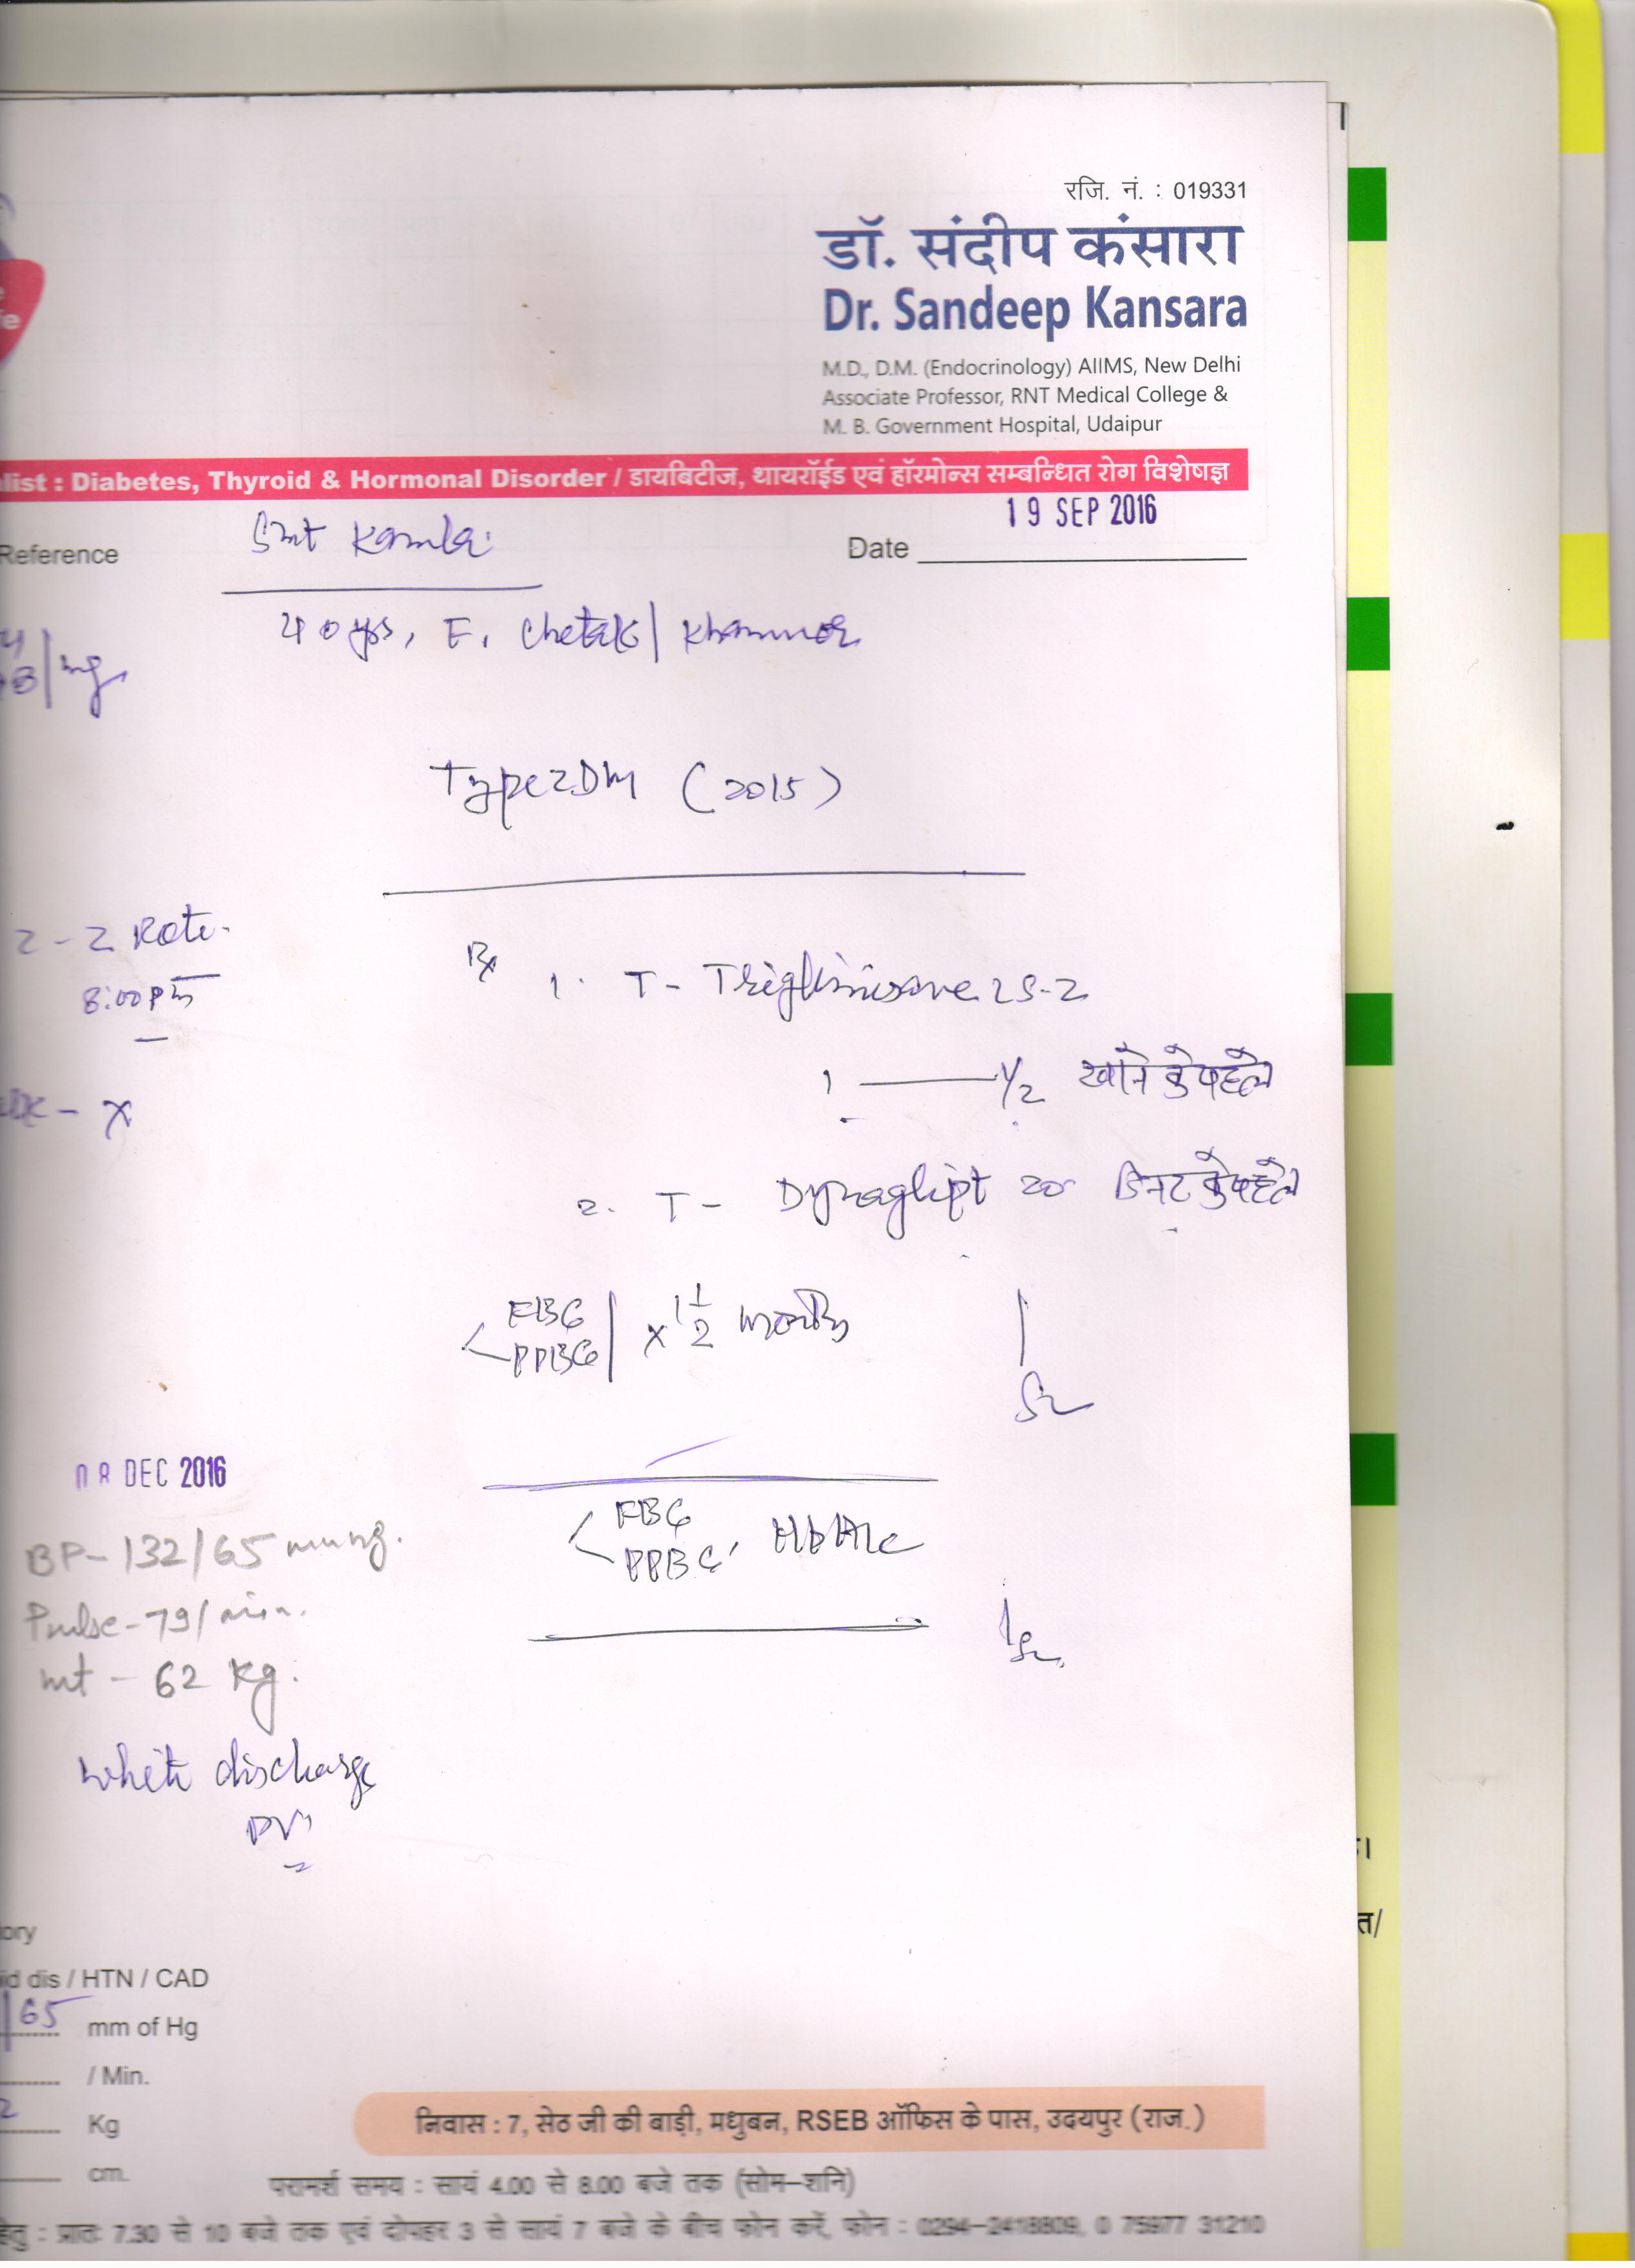 रजि. नं. : 019331
डॉ. संदीप कंसारा
Dr. Sandeep Kansara
M.D., D.M. (Endocrinology) AIIMS, New Delhi
Associate Professor, RNT Medical College &
M. B. Government Hospital, Udaipur
list : Diabetes, Thyroid & Hormonal Disorder / डायबिटीज, थायरॉईड एवं हॉरमोन्स सम्बन्धित रोग विशेषज्ञ
19 SEP 2016
Reference Smt Kamla Date
40 yrs, F, Chetak/Khamnor
Type 2 DM (2015)
2 - 2 Roti
8:00 pm
Rx 1. T - Triglimisave LS-2
1 — 1/2 खाने के पहले
x
2. T - Dynaglipt 20 डिनर के पहले
FBG
PPBG x 1 1/2 months
08 DEC 2016
BP - 132/65 mmHg.
Pulse - 79/min.
wt - 62 kg.
White discharge
PV
FBG
PPBG, HbA1c
ory
id dis / HTN / CAD
/65 mm of Hg
/ Min.
2 Kg
cm.
निवास : 7, सेठ जी की बाड़ी, मधुबन, RSEB ऑफिस के पास, उदयपुर (राज.)
परामर्श समय : सायं 4.00 से 8.00 बजे तक (सोम–शनि)
हेतु : प्रातः 7.30 से 10 बजे तक एवं दोपहर 3 से सायं 7 बजे के बीच फोन करें, फोन : 0294–2418809, 0 75977 31210